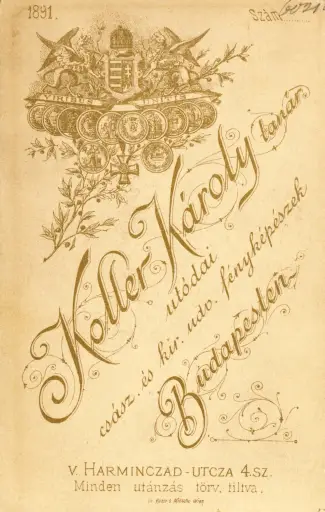 1891.
Szám
VIRTUTE
Koller Károly tanár
utódai
csász. és kir. udv. fényképészek
Budapesten.
V. HARMINCZAD-UTCZA 4.SZ.
Minden utánzás törv. tiltva.